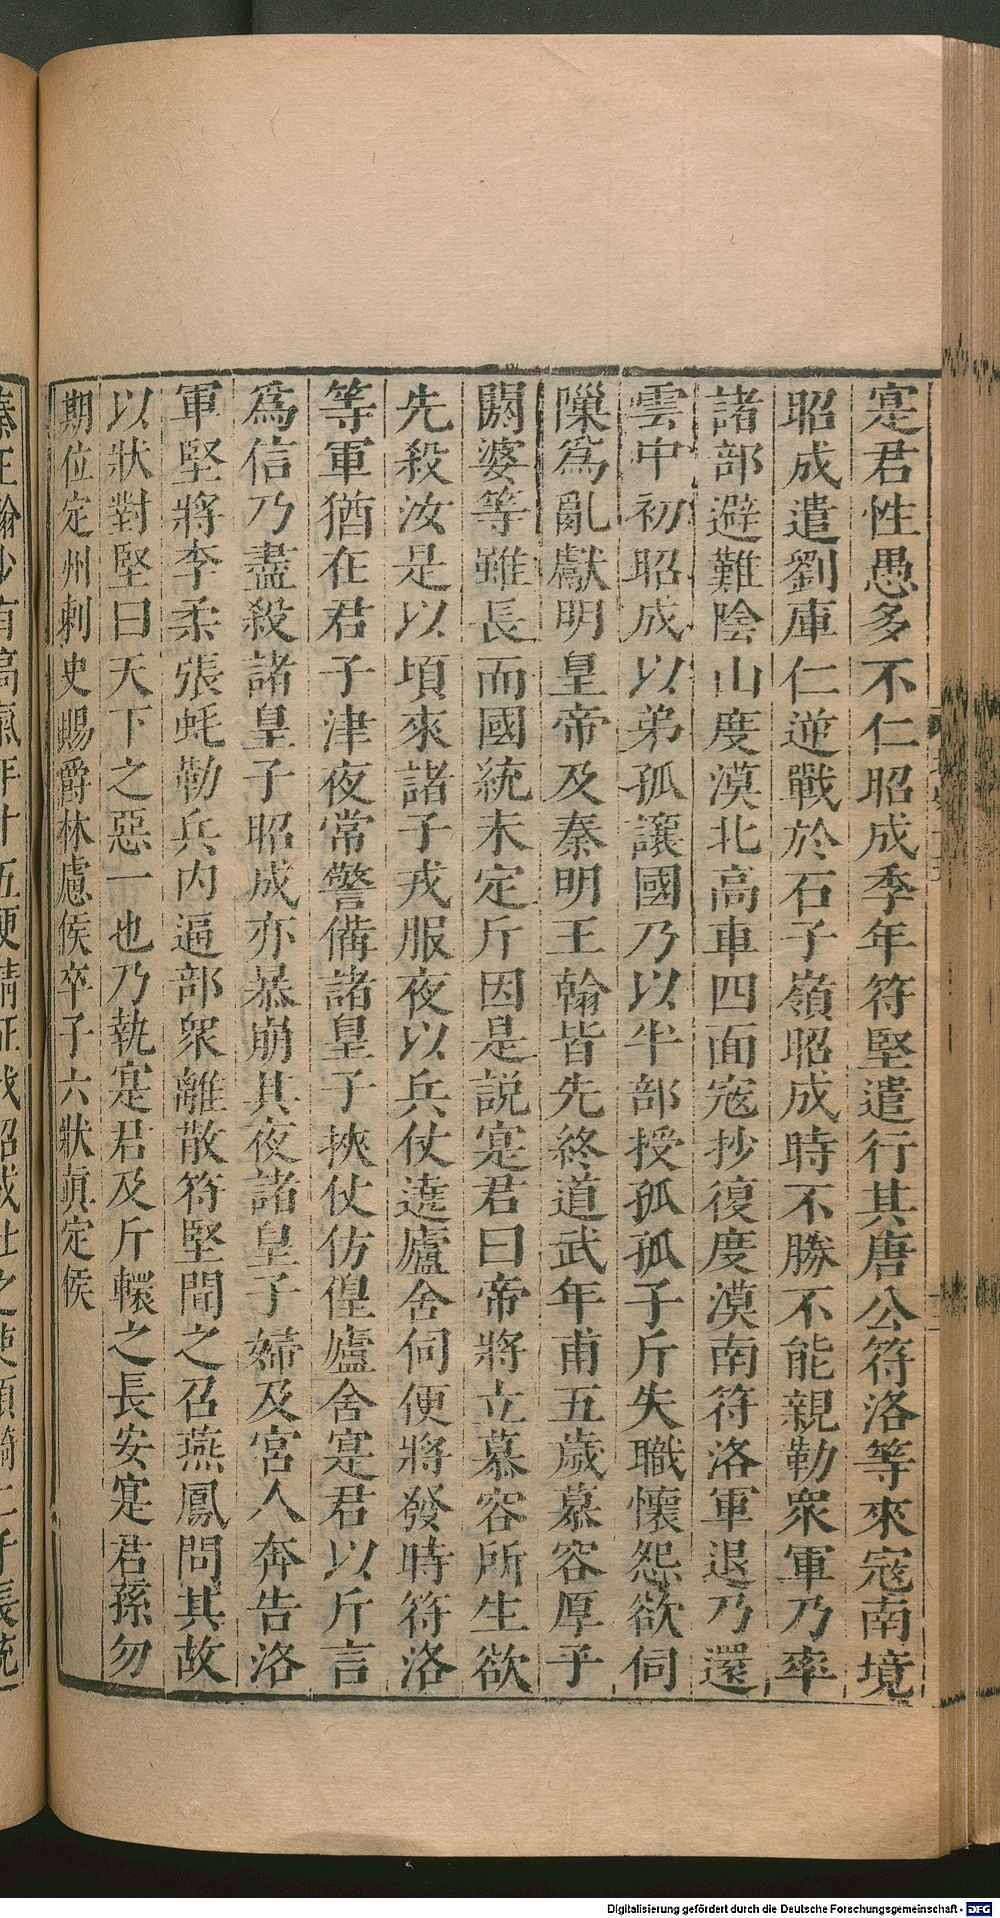 寔君性愚多不仁昭成季年符堅遣行其唐公符洛等來寇南境
昭成遣劉庫仁逆戰於石子嶺昭成時不勝不能親勒衆軍乃率
諸部避難陰山度漠北高車四面寇抄復度漠南符洛軍退乃還
雲中初昭成以弟孤讓國乃以半部授孤孤子斤失職懷怨欲伺
隟爲亂獻明皇帝及秦明王翰皆先終道武年甫五歲慕容厚子
閼婆等雖長而國統未定斤因是説寔君曰帝將立慕容所生欲
先殺汝是以頃來諸子戎服夜以兵仗遶廬舍伺便將發時符洛
等軍猶在君子津夜常警備諸皇子挾仗仿偟廬舍寔君以斤言
爲信乃盡殺諸皇子昭成亦暴崩其夜諸皇子婦及宮人奔告洛
軍堅將李柔張蚝勒兵內逼部衆離散符堅聞之召燕鳳問其故
以狀對堅曰天下之惡一也乃執寔君及斤轘之長安寔君孫勿
期位定州刺史賜爵林慮侯卒子六狀眞定侯
Digitalisierung gefördert durch die Deutsche Forschungsgemeinschaft - DFG